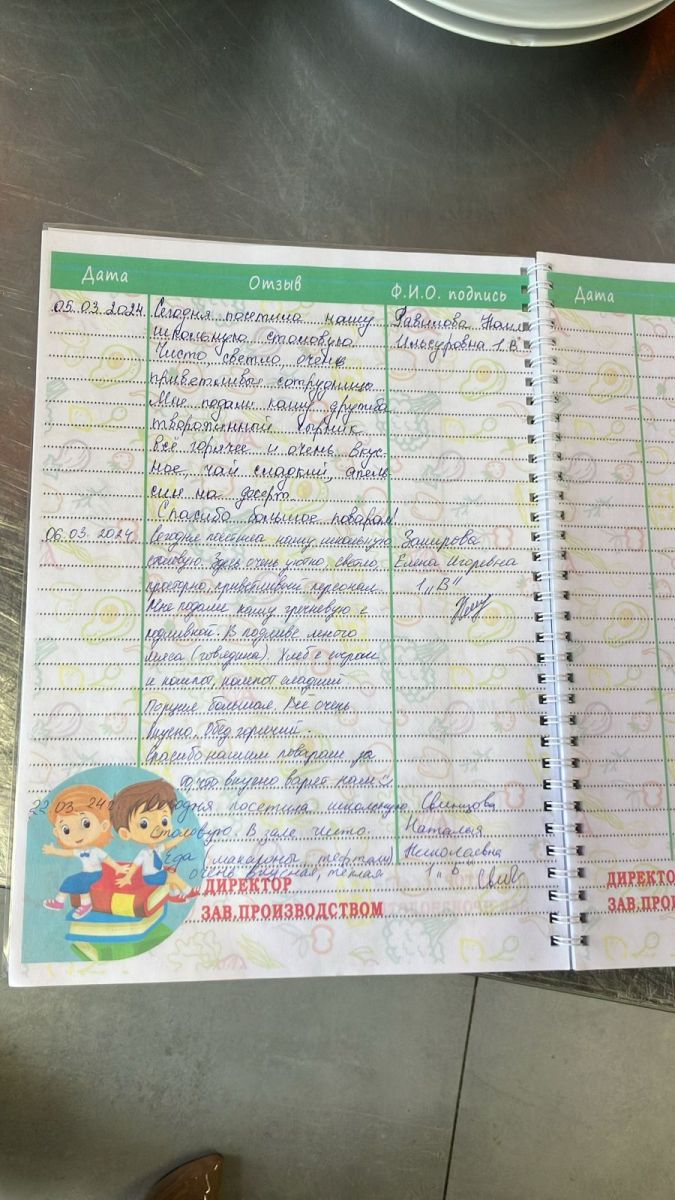 Дата Отзыв Ф.И.О. подпись Дата
05.03.2024 Сегодня посетила нашу
школьную столовую Ильсуровна 1 В
Чисто светло очень
приветливые сотрудницы
Мне подали кашу дружба
творотинный сырник
всё горячее и очень вкус-
ное, чай сладкий, апель
син на десерт
Спасибо большое поварам!
06.03.2024 Сегодня посетила нашу школьную Закирова
столовую. Здесь очень уютно, светло, Елена Игоревна
просторно, приветливый персонал 1 „В"
Мне подали кашу гречневую с
подливкой. В подливе много
мяса (говядина). Хлеб с сыром
и компот, компот сладкий
Порция большая. Всё очень
вкусно. Обед горячий.
Спасибо нашим поварам за
то, что вкусно варят нам
22.03.24г посетила школьную
столовую. В зале чисто. Наталья
Еда (макароны, тефтели) Николаевна
очень вкусная, тёплая 1 „В
ДИРЕКТОР
ЗАВ.ПРОИЗВОДСТВОМ